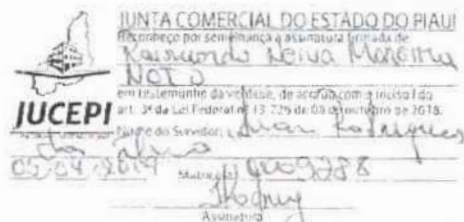 JUNTA COMERCIAL DO ESTADO DO PIAUI
Reconheço por semelhança a assinatura firmada de
Raimundo Neiva Moreira
Neto
em testemunho da verdade, de acordo com o inciso I do
art. 3º da Lei Federal nº 13.726 de 08 de outubro de 2018.
JUCEPI
Nome do Servidor: Rodrigues
da Silva
05-04-2019 Matrícula:
Assinatura